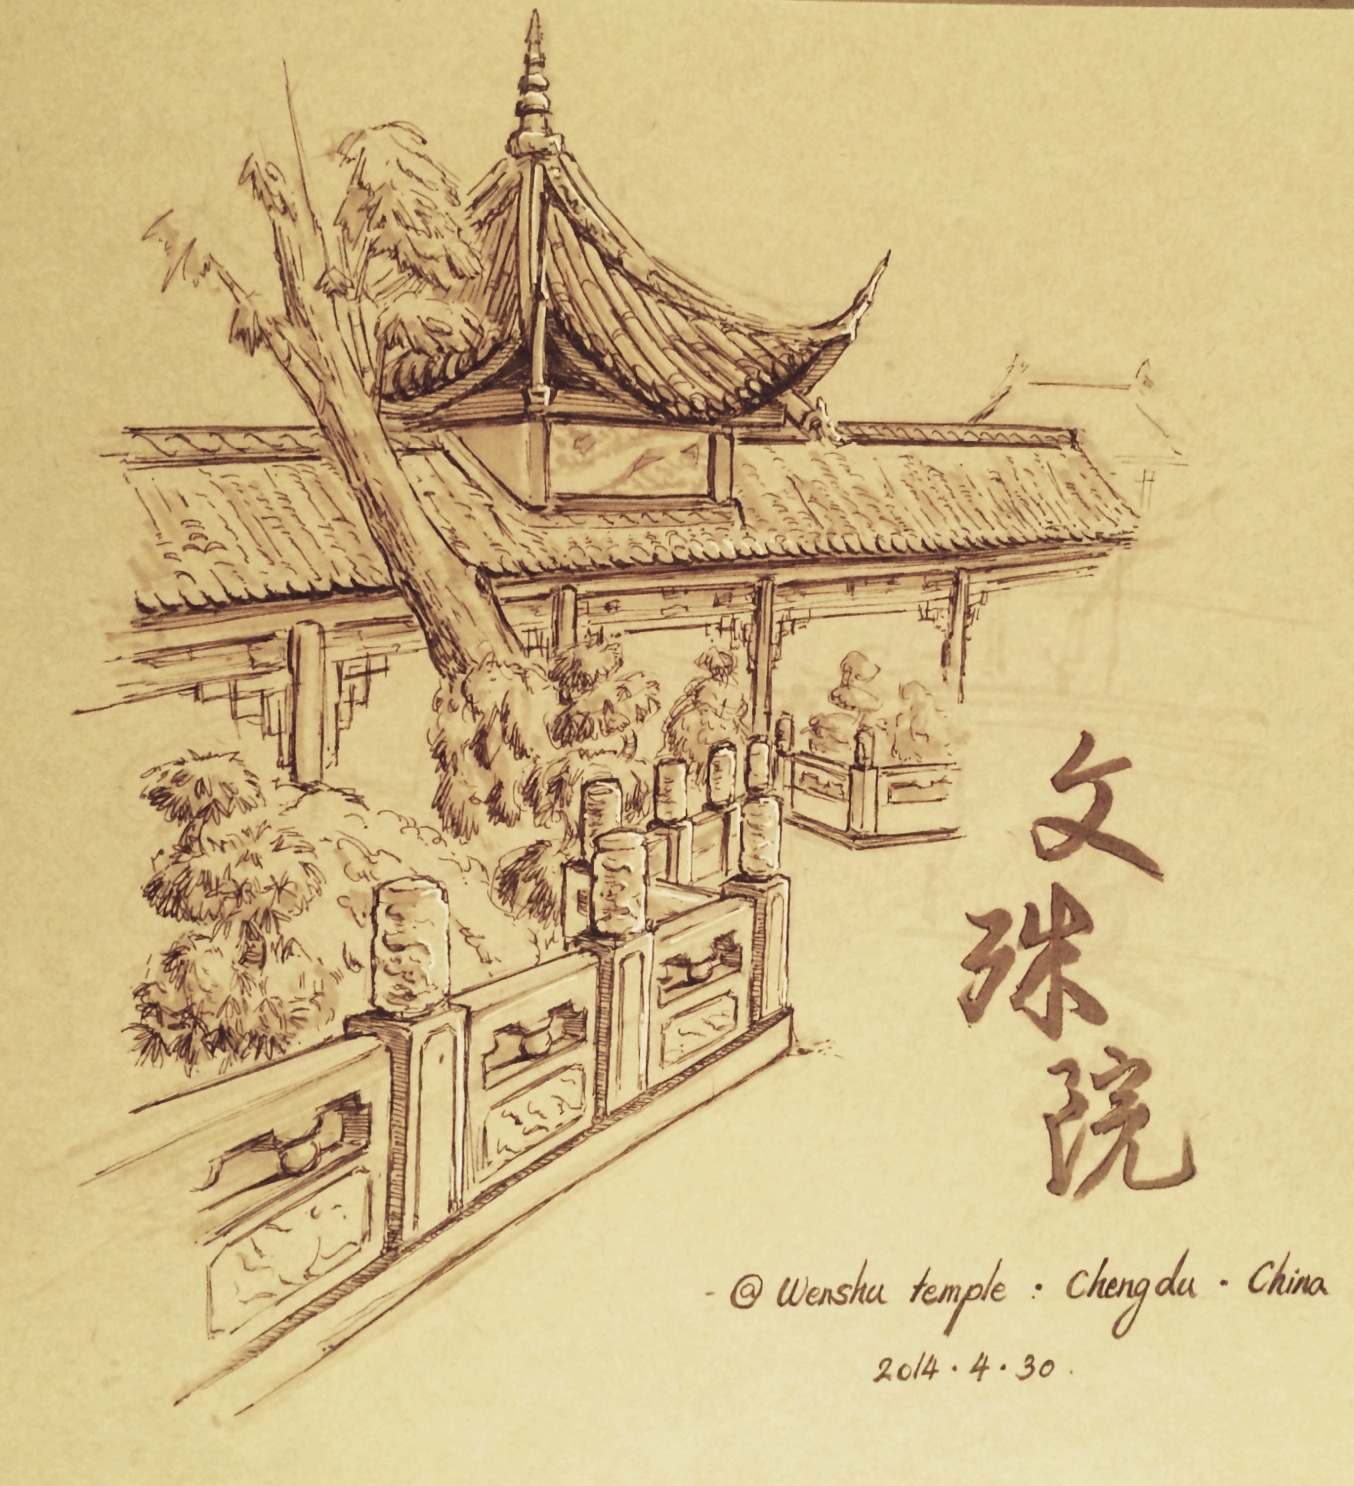 文殊院
- @ Wenshu temple · Chengdu · China
2014 · 4 · 30 .